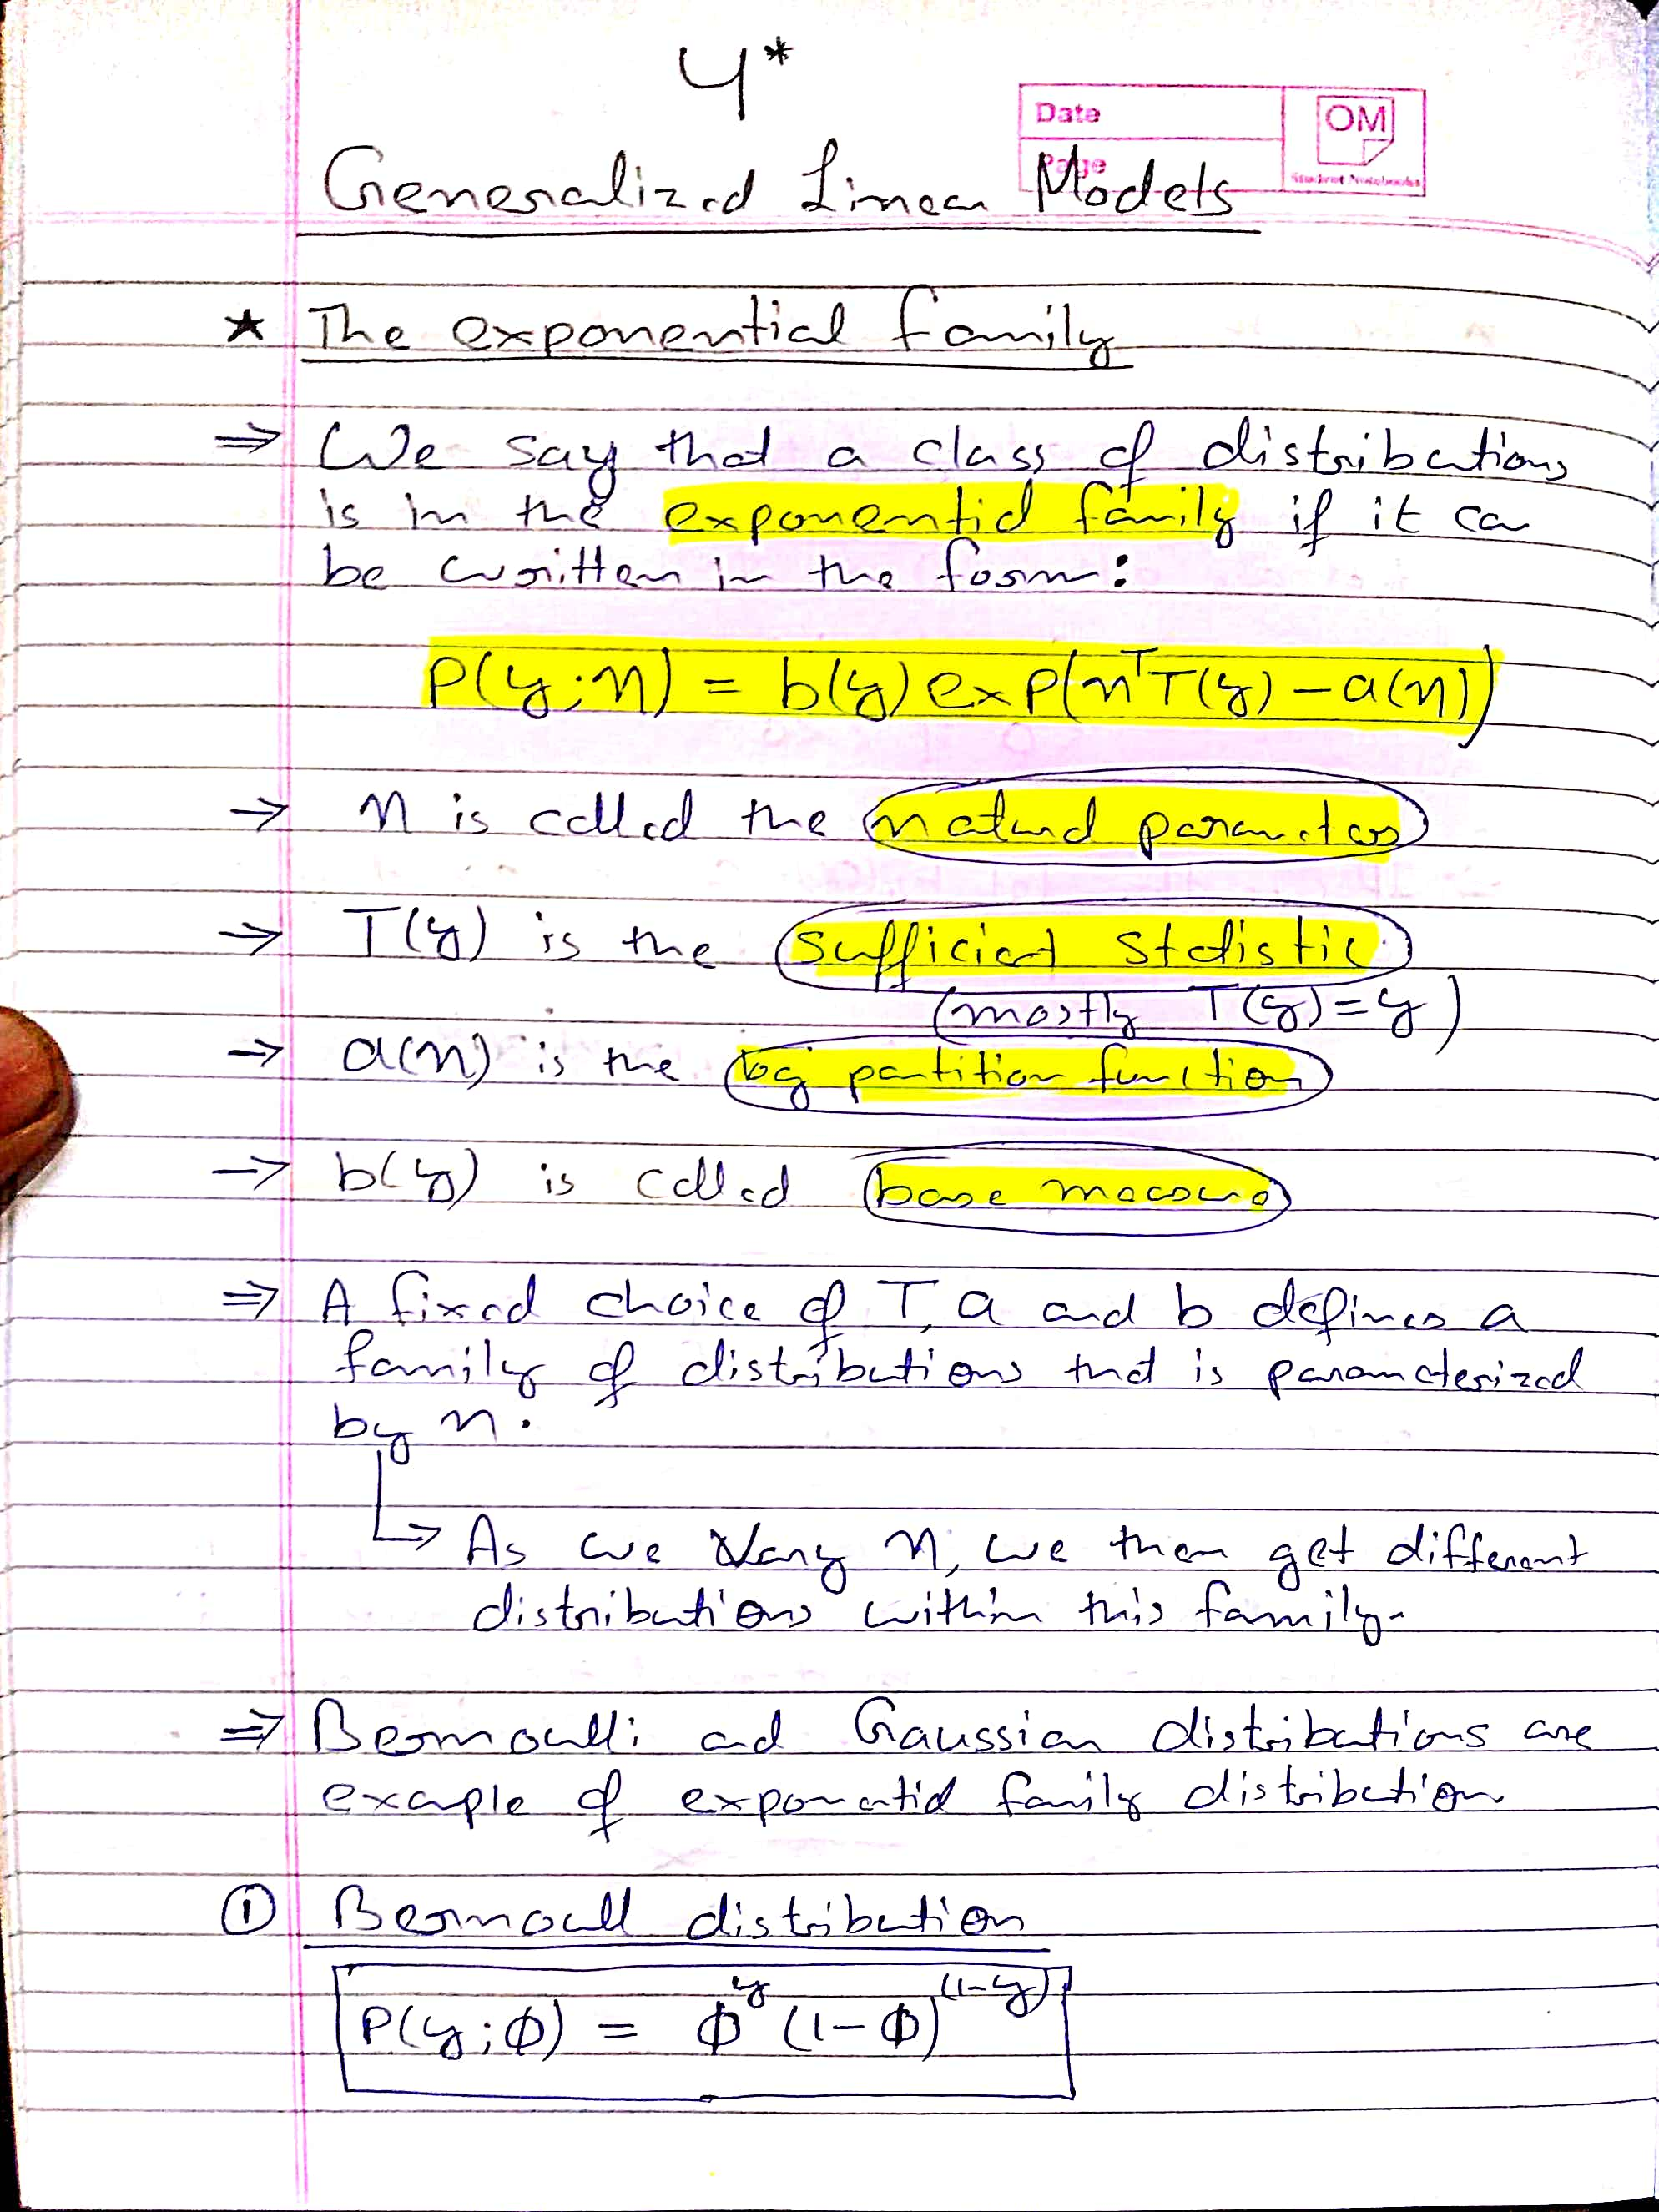 4*
Date
OM
Page
Student Notebooks
Generalized Linear Models
★ The exponential family
⇒ We say that a class of distributions
is in the exponential family if it can
be written in the form:
P(y;η) = b(y) exp(η^T T(y) - a(η))
→ η is called the natural parameters
→ T(y) is the sufficient statistic
(mostly T(y)=y)
→ a(η) is the log partition function
→ b(y) is called base measure
⇒ A fixed choice of T, a and b defines a
family of distributions that is parameterized
by η.
↳ As we vary η, we then get different
distributions within this family.
⇒ Bernoulli and Gaussian distributions are
example of exponential family distribution
① Bernoull distribution
P(y;φ) = φ^y (1-φ)^(1-y)